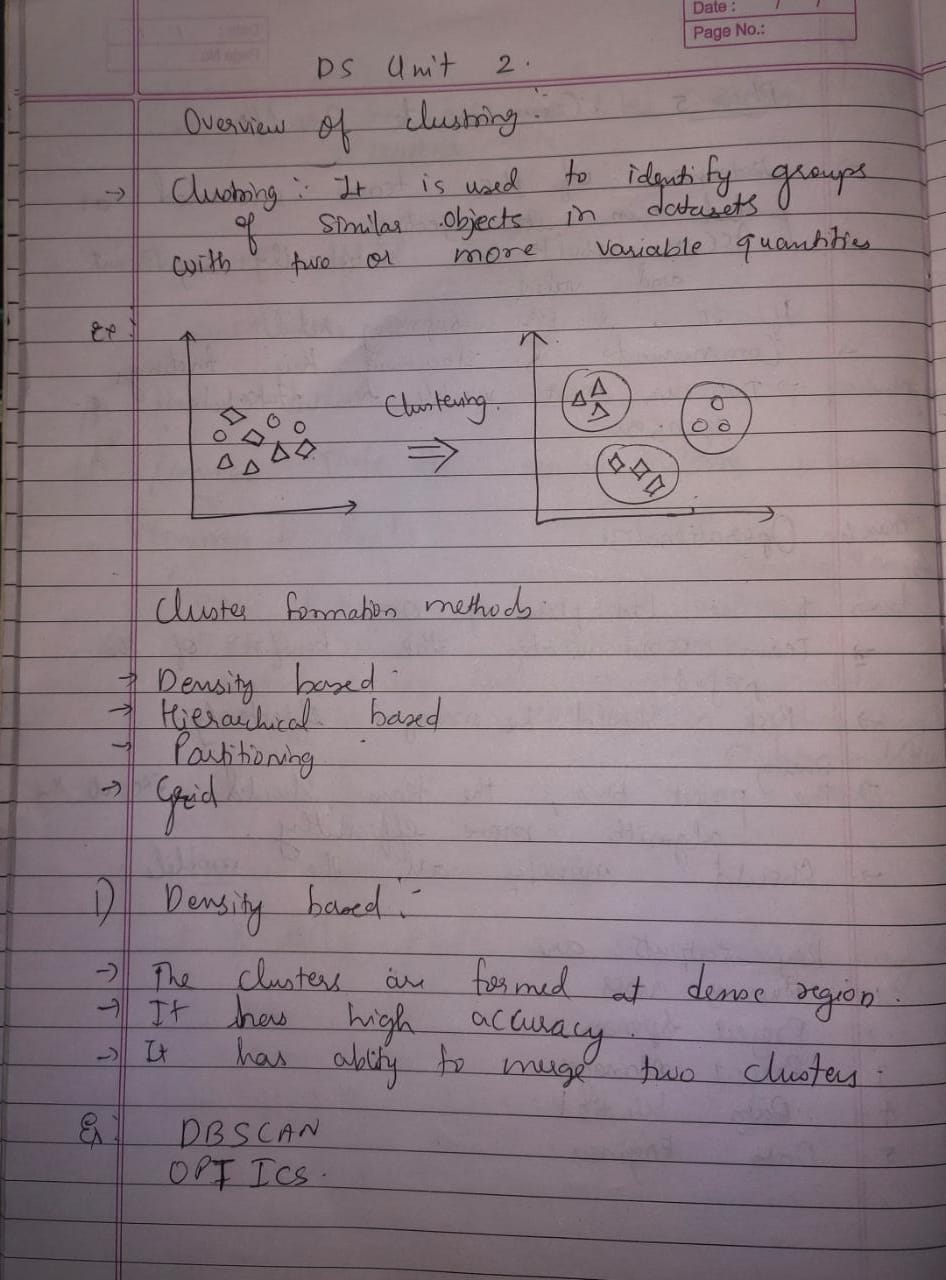 Date : / /
Page No.:
DS Unit 2.
Overview of clustring :-
→ Clustring : It is used to identify groups
of similar objects in datasets
with two or more variable quantities
Ex:
Clustering.
⇒
Cluster formation methods.
→ Density based
→ Hierarchical based
→ Partitioning
→ Grid
1) Density based :-
→ The clusters are formed at dense region.
→ It has high accuracy.
→ It has ablity to merge two clusters.
Ex: DBSCAN
OPTICS.